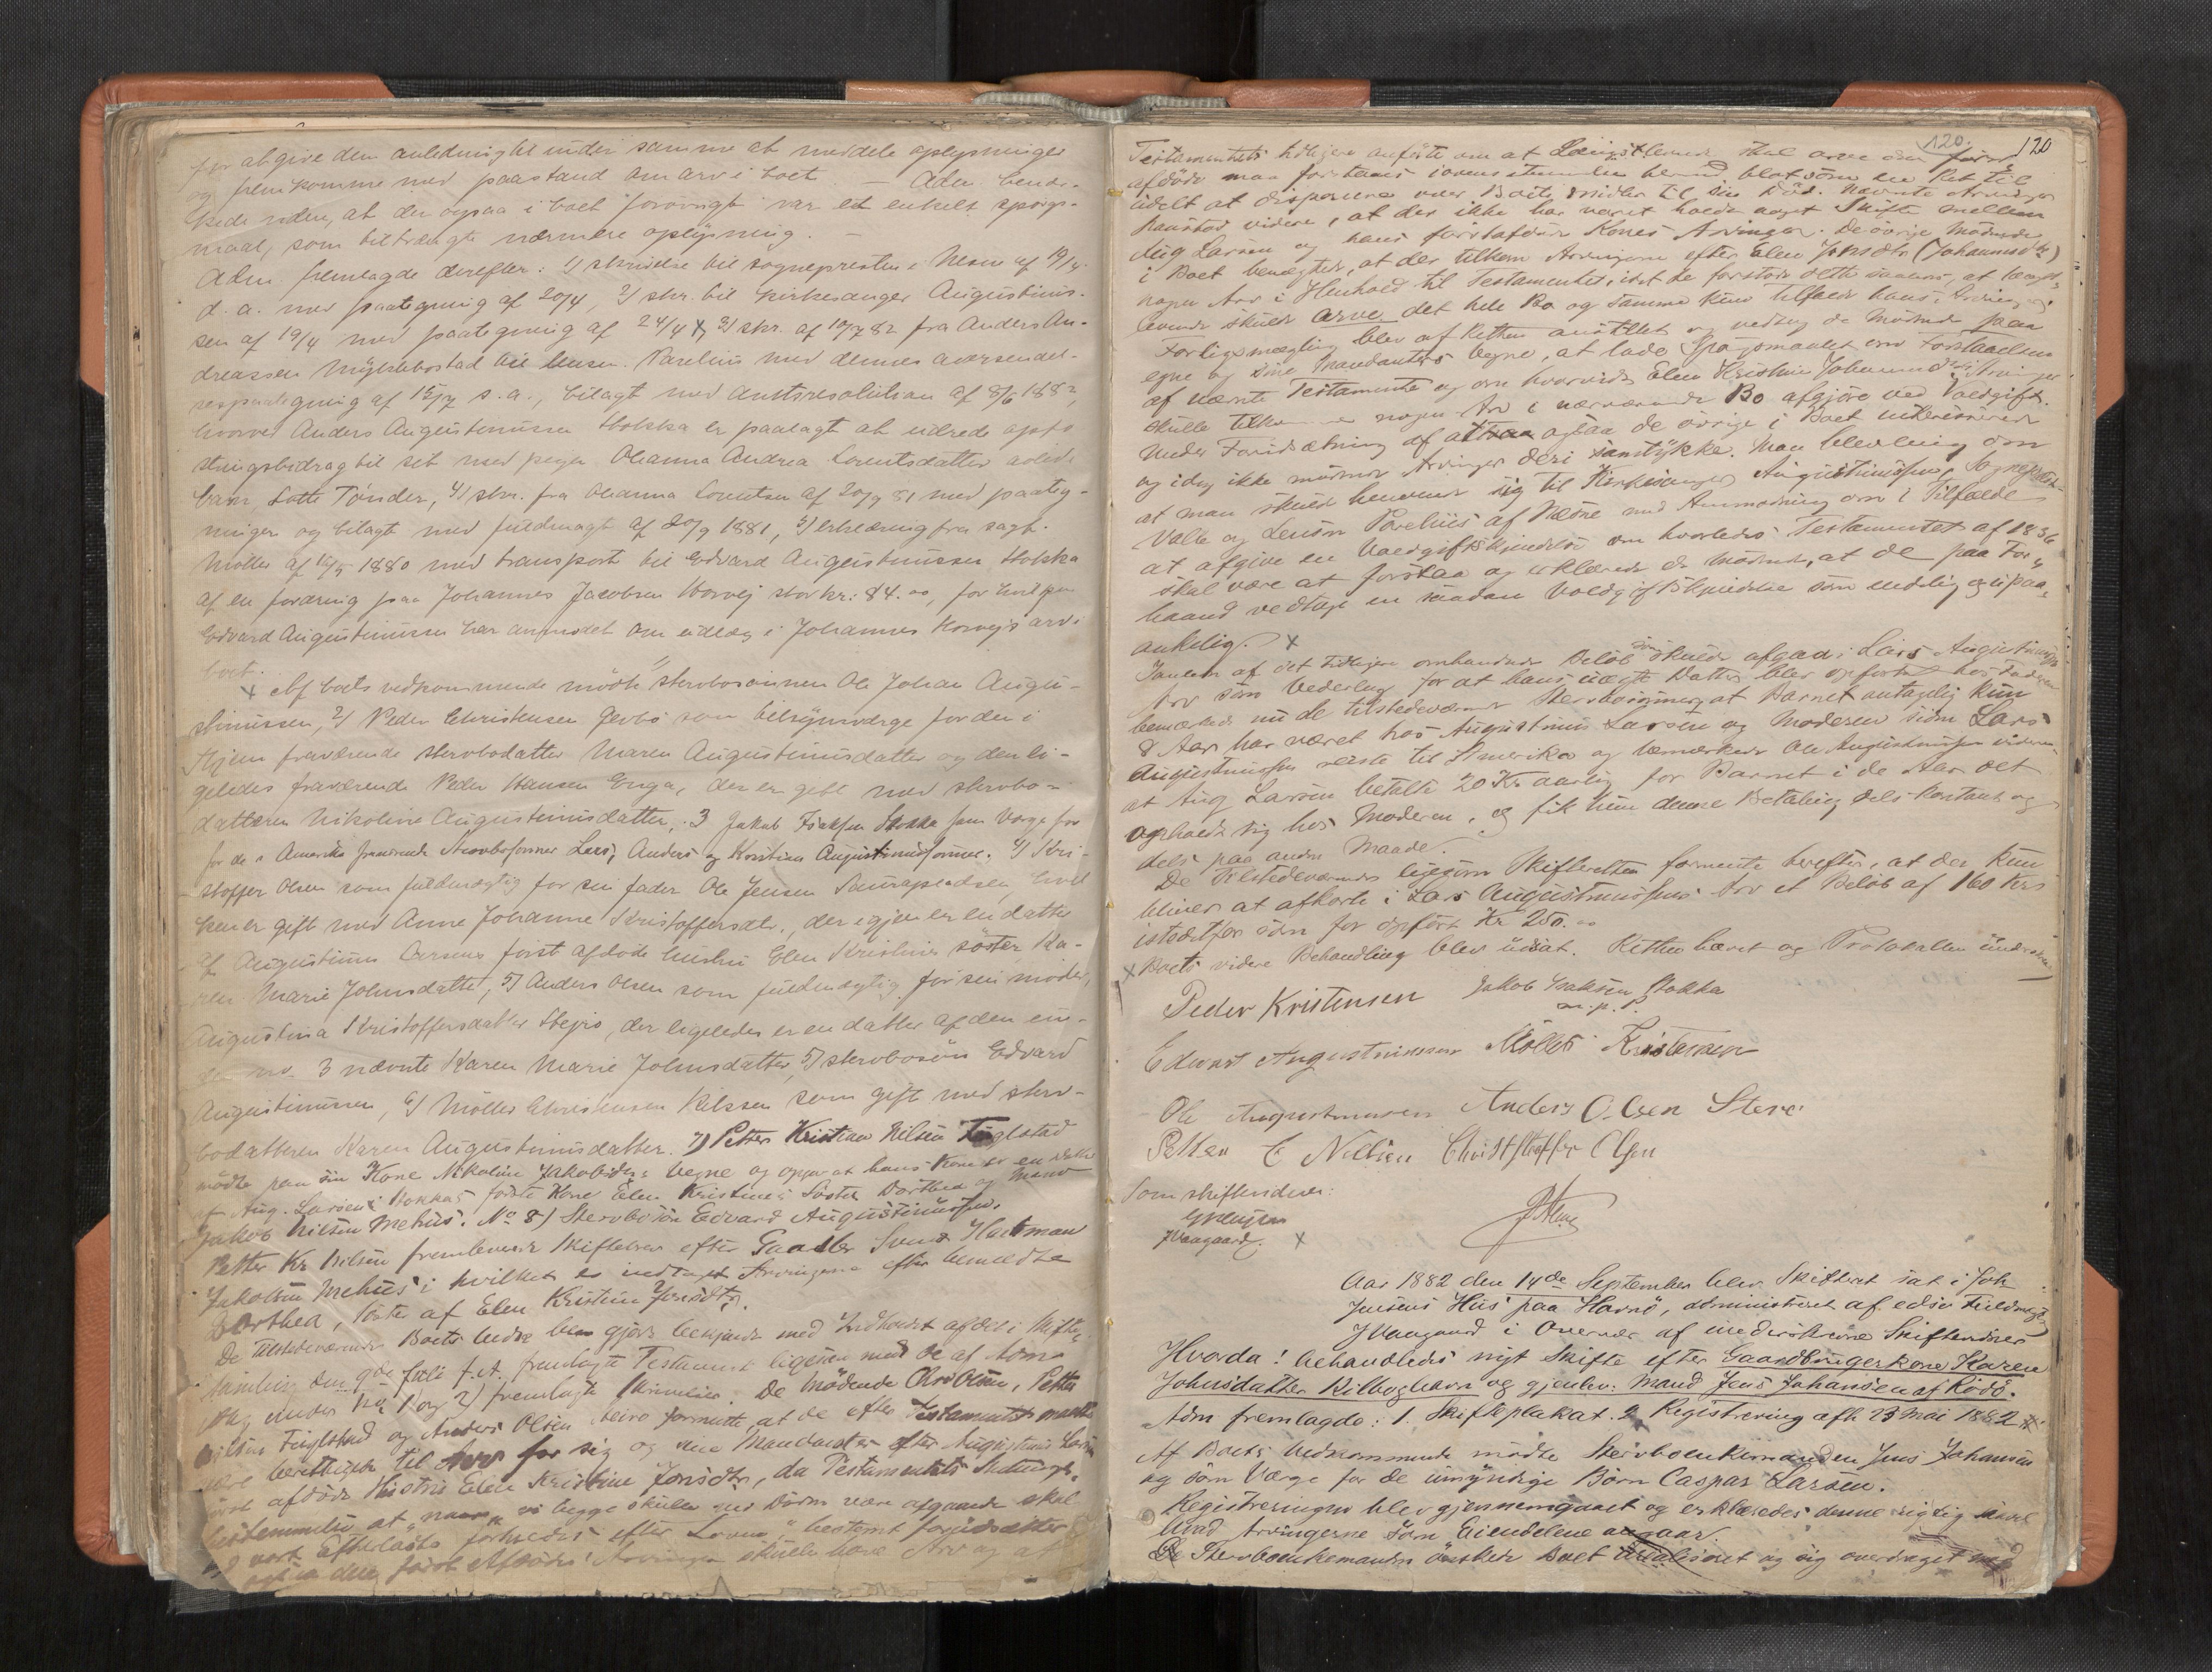 for at give dem anledning til under samme at meddele oplysninger
og fremkomme med paastand om arv i boet. — Adm. bemær-
kede viden, at der ogsaa i boet forøvrigt var et enkelt spørgs-
maal, som tiltrængte nærmere oplysning. —
Adm. fremlagde derefter: 1) skrivelse til sognepresten i Nesne af 19/4
d. a. med paategning af 20/4, 2) skr. til kirkesanger Augustinus-
sen af 19/4 med paategning af 24/4 x, 3) skr. af 10/7 82 fra Anders An-
dreassen Myklebostad til lensm. Parelius med dennes
paategning af 15/7 s. a., bilagt med amtsresolution af 8/6 1882,
hvorved Anders Augustinussen Stokka er paalagt at udrede opfo
stringsbidrag til det med pigen Oleanna Andrea Lorentsdatter avlede
barn, Lotte Tönder, 4) skr. fra Oleanna Lorentsen af 20/9 81 med paateg-
ninger og bilagt med fuldmagt af 20/9 1881, 5) erklæring fra sagf.
Möller af 1880 med transport til Edvard Augustinussen Stokka
af en fordring paa Johannes Jacobsen stor kr: 84.00, for hvilken
Edvard Augustinussen har anmodet om udlæg i Johannes arv i
boet.
x Af boets vedkommende mödte 1) stervbosönnen Ole Johan Augu-
stinussen, 2) Peder Christensen som tilsynsværge for den i
Hjem fraværende stervbodatter Maren Augustinusdatter og den li-
geledes fraværende Peder Hansen Enga, der er gift med stervbo-
datteren Nikoline Augustinusdatter, 3 Jakob Isaksen Stokka som Værge for
for de i Amerika fraværende Stervbosønner Lars, Anders og Kristian Augustinussønner. 4) Kri-
stoffer Olsen som fuldmægtig for sin fader Ole Jensen hvil
ken er gift med Anne Johanne Kristoffersdtr., der igjen er en datter
af Augustinus Larsens först afdöde hustru Elen Kristines söster Ka-
ren Marie Johnsdatter, 5) Anders Olsen som fuldmægtig for sin moder,
Augustina Kristoffersdatter, der ligeledes er en datter af den un-
der no 3 nævnte Karen Marie Johnsdatter, 5) stervbosön Edvard
Augustinussen, 6) Möller Christensen som gift med sterv-
bodatteren Karen Augustinusdatter. 7) Petter Kristian Nilsen Fuglstad
mödte paa sin Kone Nikoline Jakobsdtrs Vegne og opgav at hans Kone er en datter
af Aug. Larsen Stokkas første Kone Elen Kristines Søster Dorthea og Mand
Jakob Nilsen Mehus. No 8) Stervbosön Edvard Augustinussen.
Petter Kr Nilsen fremleverede Skiftebrev efter Svend Hartman
Jakobsen Mehus i hvilket er indtaget Arvingerne efter bemeldte
Dorthea, søster af Elen Kristine Jonsdtr.
De tilstedeværende Boets blev gjort bekjendt med Indholdet af det i Skifte-
samling den 9de Juli f. A. fremlagte Testament ligesom med de af Adm
idag under No 1) og 2) fremlagte Skrivelser. De Mødende Chr Olsen, Petter
Nilsen Fuglstad og Anders Olsen formente at de efter Testamentet maatte
være berettiget til Arv for sig og sine Mandanter efter Augustinus Larsen
først afdøde Hustru Elen Kristine Jonsdtr, da Testamentets
bestemmelse at "naar vi begge skulle ved Døden være afgaaede skal
vort Efterladte fordeles efter Loven" bestemt forudsætter
ogsaa den først Afdødes Arvinger skulle have Arv og at
120. 120
Testamentets tidligere anførte om at Længstlevende skal arve den først
afdøde maa forstaaes i overensstemmelse hermed blot som en Ret til
udelt at disponere over Boets Midler til sin Død. Nævnte Arvinger
paastod videre, at der ikke har været holdt noget Skifte mellem
Aug Larsen og hans førstafdøde Kones Arvinger. De øvrige Mødende
i Boet benægtede, at der tilkom Arvingerne efter Elen Jonsdtr (Johannesdtr)
nogen Arv i Henhold til Testamentet, idet de forstod dette saaledes, at længst-
levende skulde arve det hele Bo og samme kun tilfalde hans Arvinger.
Forligsmægling blev af Retten anstillet og vedtog de Mødende paa
egne og sine Mandanters Vegne, at lade Spørgsmaalet om Forstaaelsen
af nævnte Testamente og om hvorvidt Elen Kristine Johannesdtrs Arvinger
skulle tilkomme nogen Arv i nærværende Bo afgjøre ved Voldgift.
Under Forudsætning af at ogsaa de øvrige i Boet interesserede
og idag ikke mødende Arvinger deri samtykke. Man blev enig om
at man skulde henvende sig til Kirkesanger Augustinussen, Sogneprest
Valle og Lensm Parelius af Næsne med Anmodning om i Tilfælde
at afgive en Voldgiftskjendelse om hvorledes Testamentet af 1836
skal være at forstaa og erklærede de Mødende, at de paa For-
haand vedtage en saadan Voldgiftskjendelse som endelig og upaa-
ankelig. x
I anledn af det tidligere omhandlede Beløb som skulde afgaa i Lars Augustinussens
Arv som Vederlag for at hans uægte Datter blev opfostret hos Faderen
bemærkede nu de tilstedeværende Stervbosønner at Barnet antagelig kun
8 Aar har været hos Augustinus Larsen og Moderen siden Lars
Augustinussen reiste til Amerika og bemærkede Ole Augustinussen videre
at Aug Larsen betalte 20 Kr aarlig for Barnet i de Aar det
opholdt sig hos Moderen, og fik hun denne Betaling dels kontant og
dels paa anden Maade.
De Tilstedeværende ligesom Skifteretten formente herefter, at der kun
bliver at afkorte i Lars Augustinussens Arv et Beløb af 160 Kr
istedetfor som før opført Kr 250.00
x Boets videre Behandling blev udsat. Retten hævet og Protokollen underskrevet
Peder Kristensen Jakob Isaksen Stokka
m. p. P.
Edvard Augustinussen Möller Kristensen
Ole Augustinussen Anders Olsen
Petter C Nilsen Christoffer Olsen
Som skiftevidner:
JVaagaard. x
Aar 1882 den 14de September blev Skifteret sat i Joh
Jensens Hus paa Havnö, administreret af edsv Fuldmægtig
JVaagaard i Overvær af undertskrevne Skiftevidner
Hvorda! behandledes nyt Skifte efter Gaardbrugerkone Karen
Johnsdatter Kilboghavn og gjenlev: Mand Jens Johansen af Rödö.
Adm fremlagde: 1. Skifteplakat. 2 Registrering afh 23 Mai 1882 x
Af Boets Vedkommende mødte Stervboenkemanden Jens Johansen
og som Værge for de umyndige Børn Caspar Larsen.
Registreringen blev gjennemgaaet og erklæredes denne rigtig saavel
hvad Arvingerne som Eiendelene angaar.
Stervboenkemanden önskede Boet og sig overdraget med